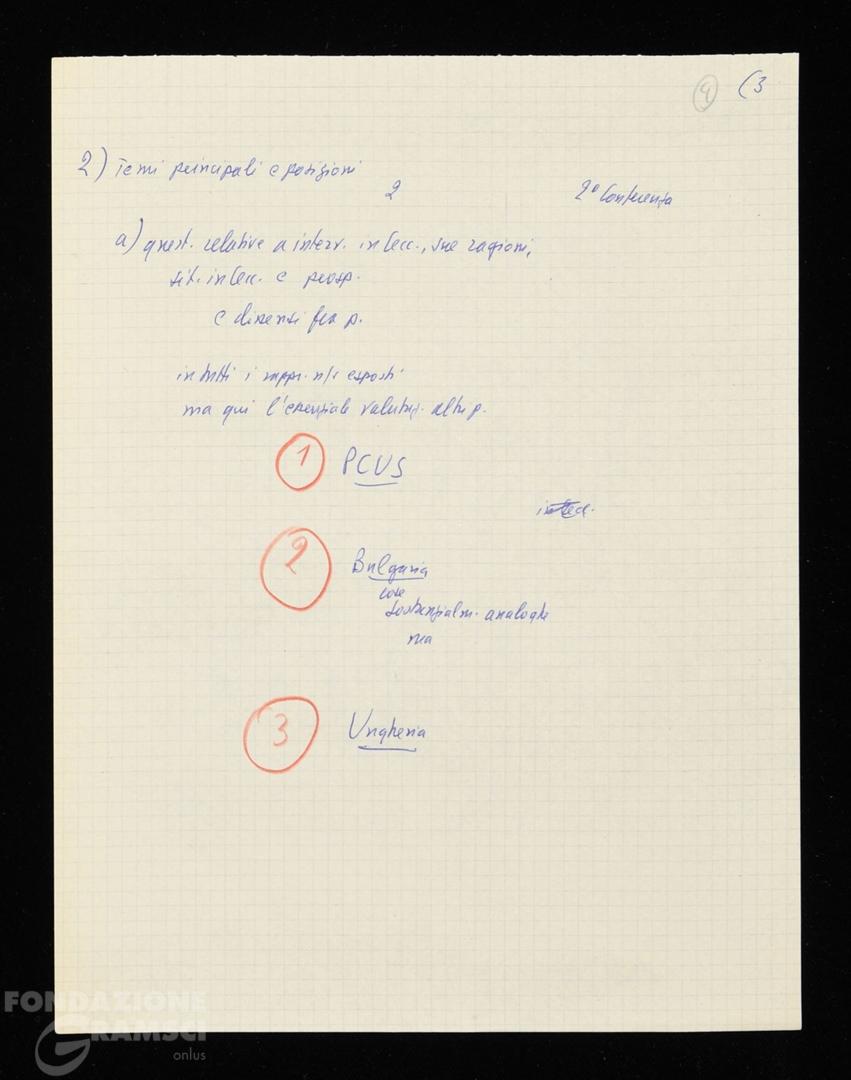 9 (3
2) Temi principali e posizioni
2 2ª Conferenza
a) quest. relative a interv. in Cecc., sue ragioni,
sit. in Cecc. e prosp.
e dissensi fra p.
in tutti i rapp. esposti
ma qui l'essenziale valutaz. altri p.
1 PCUS
2 Bulgaria
cose
sostanzialm. analoghe
ma
3 Ungheria
FONDAZIONE
GRAMSCI
onlus